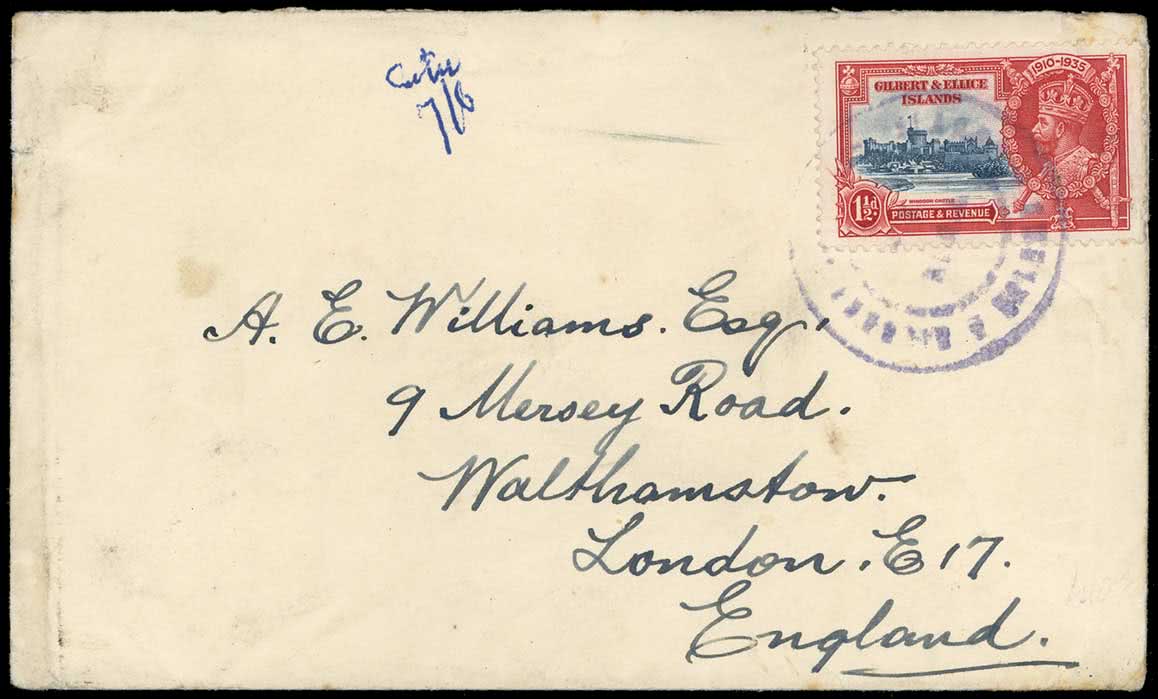 7/6
1910-1935
GILBERT & ELLICE
ISLANDS
WINDSOR CASTLE
1½d.
POSTAGE & REVENUE
A. E. Williams. Esq.,
9 Mersey Road.
Walthamstow.
London. E 17.
England.